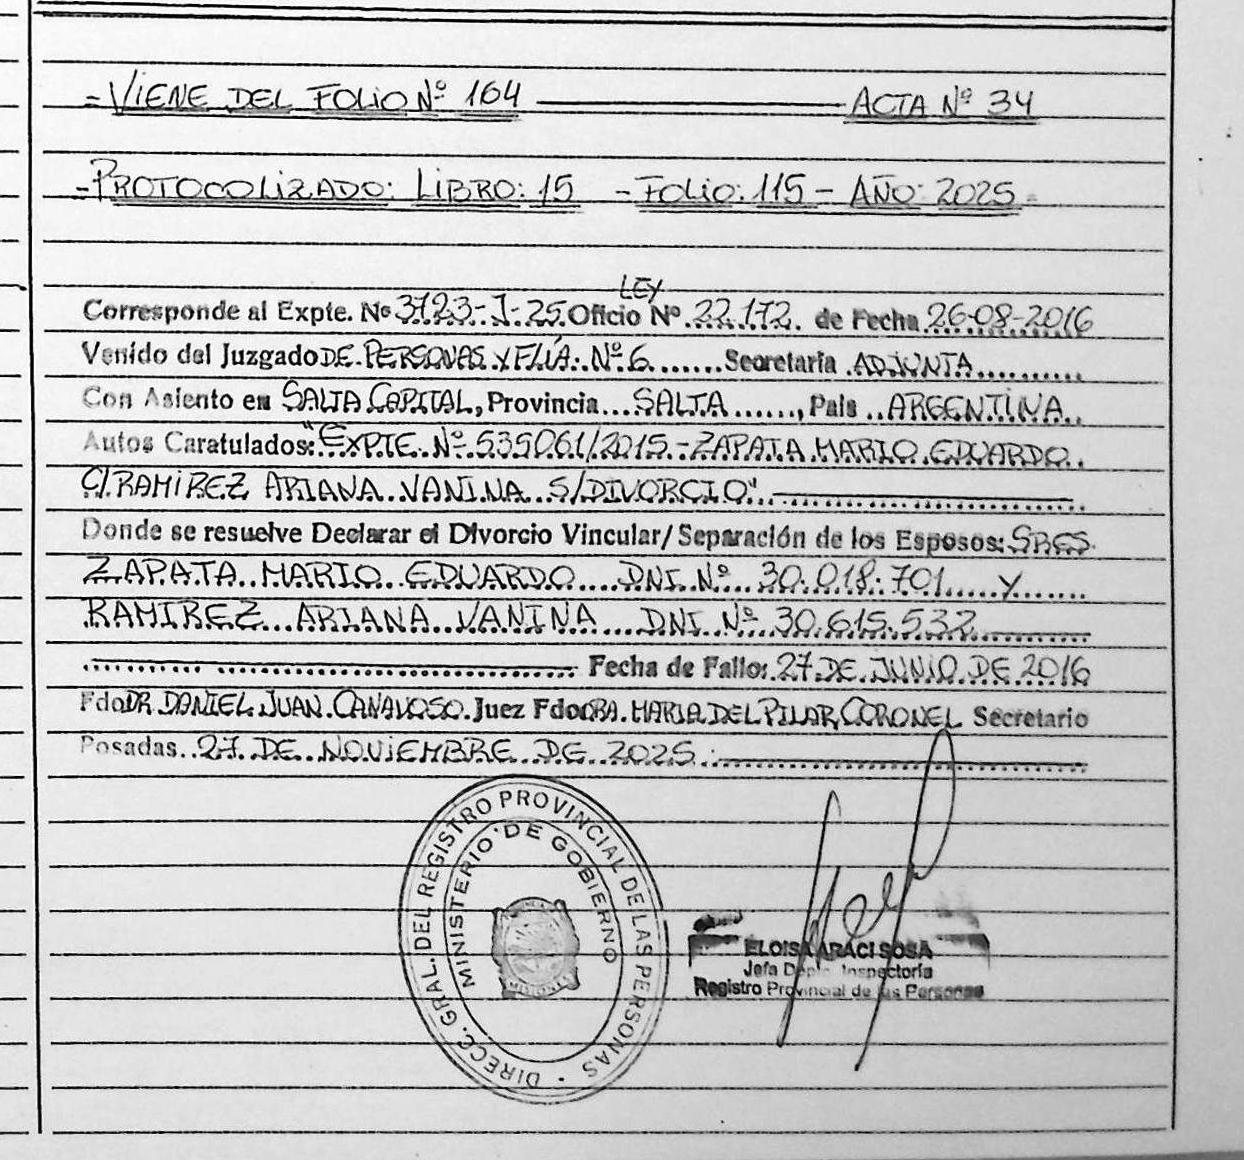 - VIENE DEL FOLIO Nº 164 ACTA Nº 34
- PROTOCOLIZADO: LIBRO: 15 - FOLIO: 115 - AÑO: 2025
LEY
Corresponde al Expte. Nº 3723-J-25 Oficio Nº 22.172. de Fecha 26-08-2016
Venido del Juzgado DE PERSONAS Y FLIA. Nº 6 Secretaria ADJUNTA
Con Asiento en SALTA CAPITAL, Provincia SALTA, Pais ARGENTINA
Autos Caratulados: "EXPTE. Nº 535061/2015 - ZAPATA MARIO EDUARDO
C/ RAMIREZ ARIANA VANINA S/DIVORCIO"
Donde se resuelve Declarar el Divorcio Vincular/Separación de los Esposos: SRES
ZAPATA MARIO EDUARDO DNI Nº 30.018.701 Y
RAMIREZ ARIANA VANINA DNI Nº 30.615.532
Fecha de Fallo: 27 DE JUNIO DE 2016
Fdo DR. DANIEL JUAN CANAVOSO Juez Fdo DRA. MARIA DEL PILAR CORONEL Secretario
Posadas 27 DE NOVIEMBRE DE 2025
DIRECC. GRAL. DEL REGISTRO PROVINCIAL DE LAS PERSONAS
MINISTERIO DE GOBIERNO
MISIONES
ELOISA ARACI SOSA
Jefa Dpto. Inspectoria
Registro Provincial de las Personas